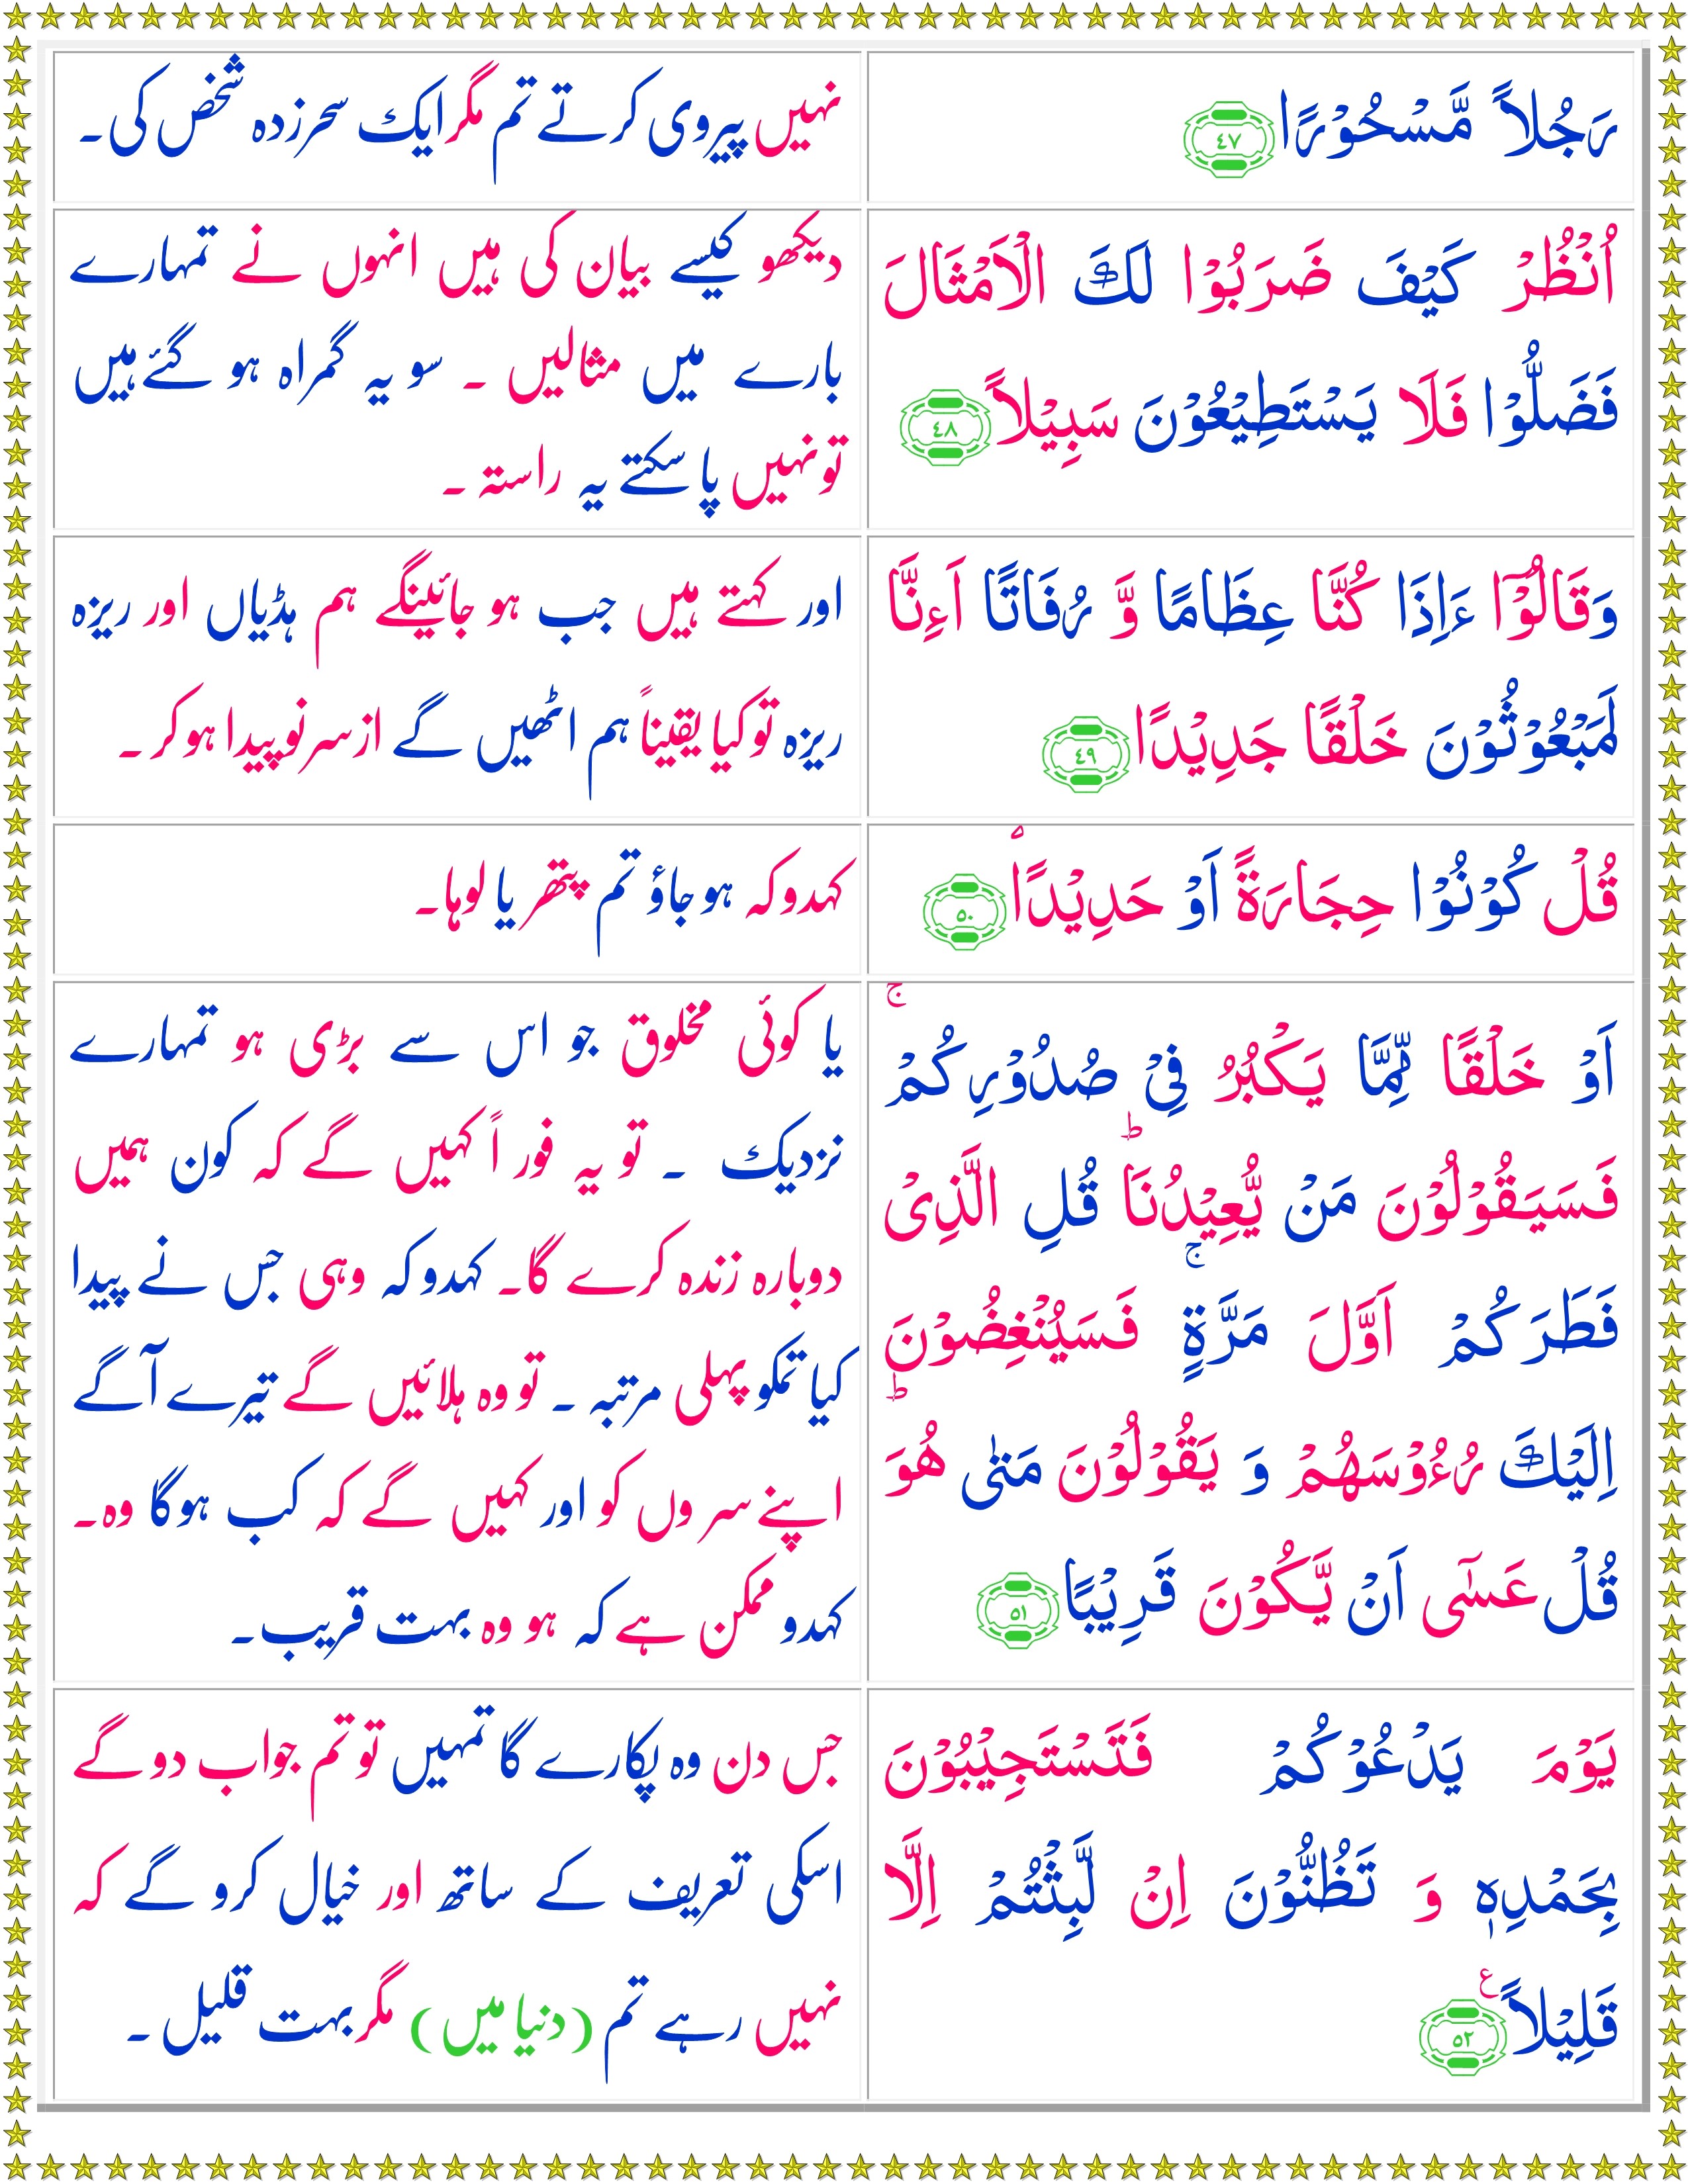 رَجُلاً مَّسْحُوْرًا ﴿٤٧﴾
نہیں پیروی کرتے تم مگر ایک سحر زدہ شخص کی۔
اُنْظُرْ كَيْفَ ضَرَبُوْا لَكَ الْاَمْثَالَ
فَضَلُّوْا فَلَا يَسْتَطِيْعُوْنَ سَبِيْلاً ﴿٤٨﴾
دیکھو کیسے بیان کی ہیں انہوں نے تمہارے
بارے میں مثالیں ۔ سو یہ گمراہ ہو گئے ہیں
تو نہیں پا سکتے یہ راستہ ۔
وَقَالُوْۤا ءَاِذَا كُنَّا عِظَامًا وَّ رُفَاتًا اَءِنَّا
لَمَبْعُوْثُوْنَ خَلْقًا جَدِيْدًا ﴿٤٩﴾
اور کہتے ہیں جب ہو جائینگے ہم ہڈیاں اور ریزہ
ریزہ تو کیا یقیناً ہم اٹھیں گے ازسرنو پیدا ہو کر ۔
قُلْ كُوْنُوْا حِجَارَةً اَوْ حَدِيْدًا ﴿٥٠﴾
کہدو کہ ہو جاؤ تم پتھر یا لوہا۔
اَوْ خَلْقًا مِّمَّا يَكْبُرُ فِيْ صُدُوْرِكُمْ ۚ
فَسَيَقُوْلُوْنَ مَنْ يُّعِيْدُنَا ؕ قُلِ الَّذِىْ
فَطَرَكُمْ اَوَّلَ مَرَّةٍ ۚ فَسَيُنْغِضُوْنَ
اِلَيْكَ رُءُوْسَهُمْ وَ يَقُوْلُوْنَ مَتٰى هُوَ ؕ
قُلْ عَسٰۤى اَنْ يَّكُوْنَ قَرِيْبًا ﴿٥١﴾
یا کوئی مخلوق جو اس سے بڑی ہو تمہارے
نزدیک ۔ تو یہ فوراً کہیں گے کہ کون ہمیں
دوبارہ زندہ کرے گا۔ کہدو کہ وہی جس نے پیدا
کیا تمکو پہلی مرتبہ ۔ تو وہ ہلائیں گے تیرے آگے
اپنے سروں کو اور کہیں گے کہ کب ہوگا وہ۔
کہدو ممکن ہے کہ ہو وہ بہت قریب۔
يَوْمَ يَدْعُوْكُمْ فَتَسْتَجِيْبُوْنَ
بِحَمْدِهٖ وَ تَظُنُّوْنَ اِنْ لَّبِثْتُمْ اِلَّا
قَلِيْلاً ﴿٥٢﴾ ع
جس دن وہ پکارے گا تمہیں تو تم جواب دو گے
اسکی تعریف کے ساتھ اور خیال کرو گے کہ
نہیں رہے تم (دنیا میں) مگر بہت قلیل ۔